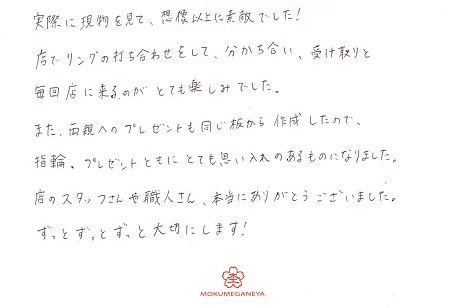 実際に現物を見て、想像以上に素敵でした!
店でリングの打ち合わせをして、分かち合い、受け取りと
毎回店に来るのがとても楽しみでした。
また、両親へのプレゼントも同じ板から作成したので、
指輪、プレゼントともにとても思い入れのあるものになりました。
店のスタッフさんや職人さん、本当にありがとうございました。
ずっとずっとずっと大切にします!
MOKUMEGANEYA